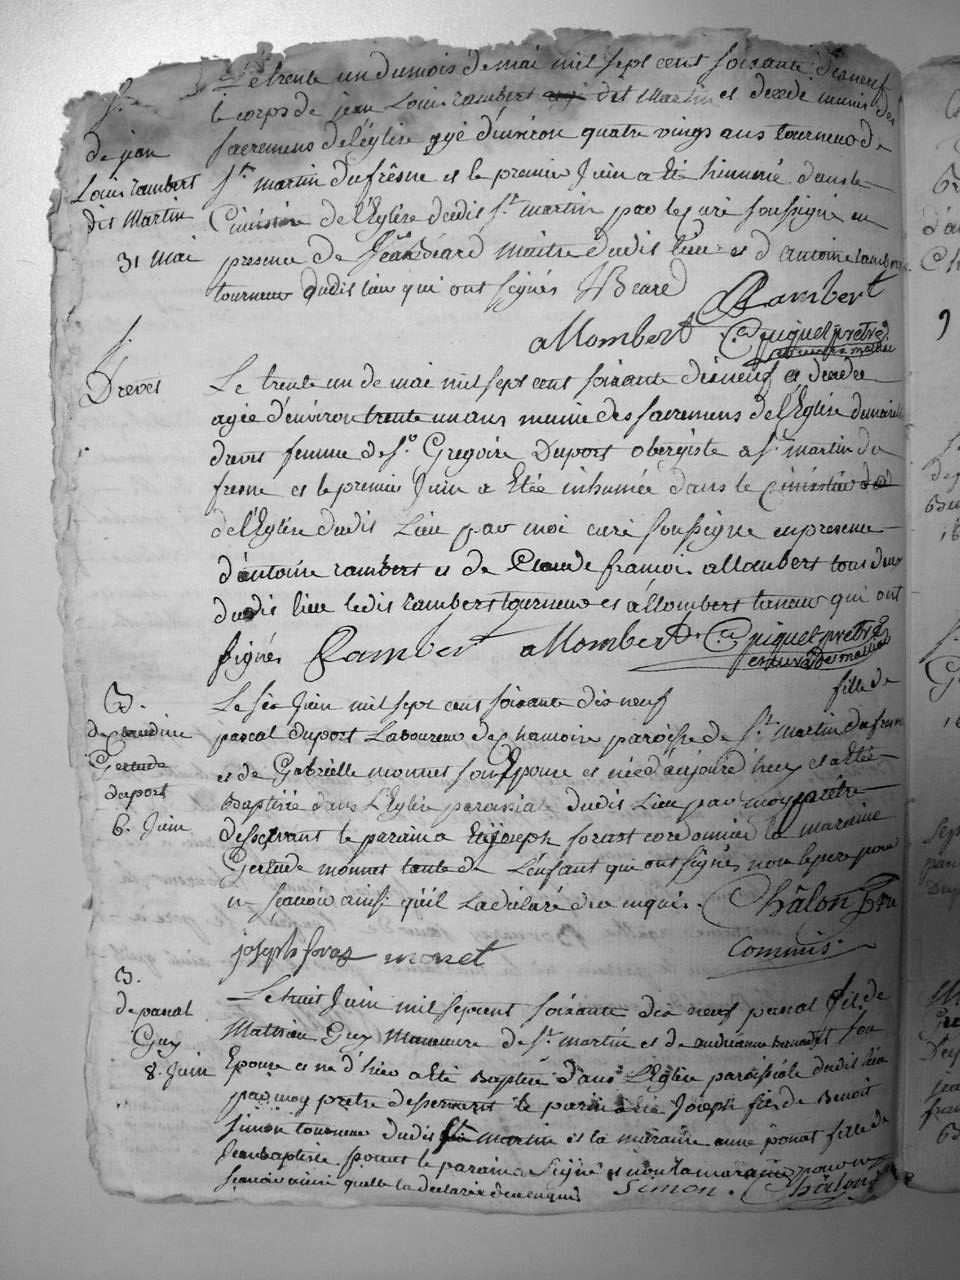 S.
de jean
Louis rambert
dit Martin
31 mai
Le trente un du mois de mai mil sept cent soixante dis neuf
le corps de jean Louis rambert dit Martin et decedé munis des
sacremens de l'église agé d'environ quatre vings ans tourneur de
St. martin du frêsne et le premier Juin a été hinumé dans le
Cimistère de l'Eglise dudit St. martin par le curé soussigné en
presence de Jean Béard maitre dudit lieu et d'antoine rambert
tourneur dudit lieu qui ont signés JBeard
Rambert
allombert Cl. a. piquet prêtre
S.
Drevet
Le trente un de mai mil sept cent soixante dis neuf est decedee
agée d'environ trente un ans munie des sacremens de l'Eglise
drevet femme de Sr. Gregoire Duport obergiste a St. martin du
fresne et le premier Juin a étée inhumée dans le cimistère
de l'Eglise dudit Lieu par moi curé soussigné en presence
d'antoine rambert et de Claude francoi allombert tous deux
dudit lieu ledit rambert tourneur et allombert qui ont
signés Rambert allombert piquet prêtre
B.
de claudine
Gertude
duport
6. Juin
Le six Juin mil sept cent soixante dis neuf fille de
pascal duport Laboureur de chamoire paroisse de St. martin du fresne
et de Gabrielle monnet son Epouse et née d'aujourd'huy et a étée
Baptisée dans L'Eglise parossiale dudit Lieu par moy prêtre
desservant le parain a été joseph forast cordonnier la maraine
Gertude monnat tante de L'enfant qui ont signés non le pere pour
ne scavoir ainsi qu'il La déclaré de ce enquis. Châlon ptre
joseph foras monet commis
B.
de pascal
Guy
8. Juin
Le huit Juin mil sept cent soixante dix neuf pascal fil de
Mathieu Guy Maneuvre de St. martin et de andrianne son
Epouse et né d'hier a été Baptisé dans L'Eglise paroissiale dudit lieu
par moy pretre desservant le parin a été Joseph fils de Benoit
Simon tourneur dudit St. martin et la maraine anne ponat fille de
Jean baptiste ponat le parain a signé et non la maraine pour ne
scavoir ainsi quelle la declaré de ce enquis Simon. Châlon